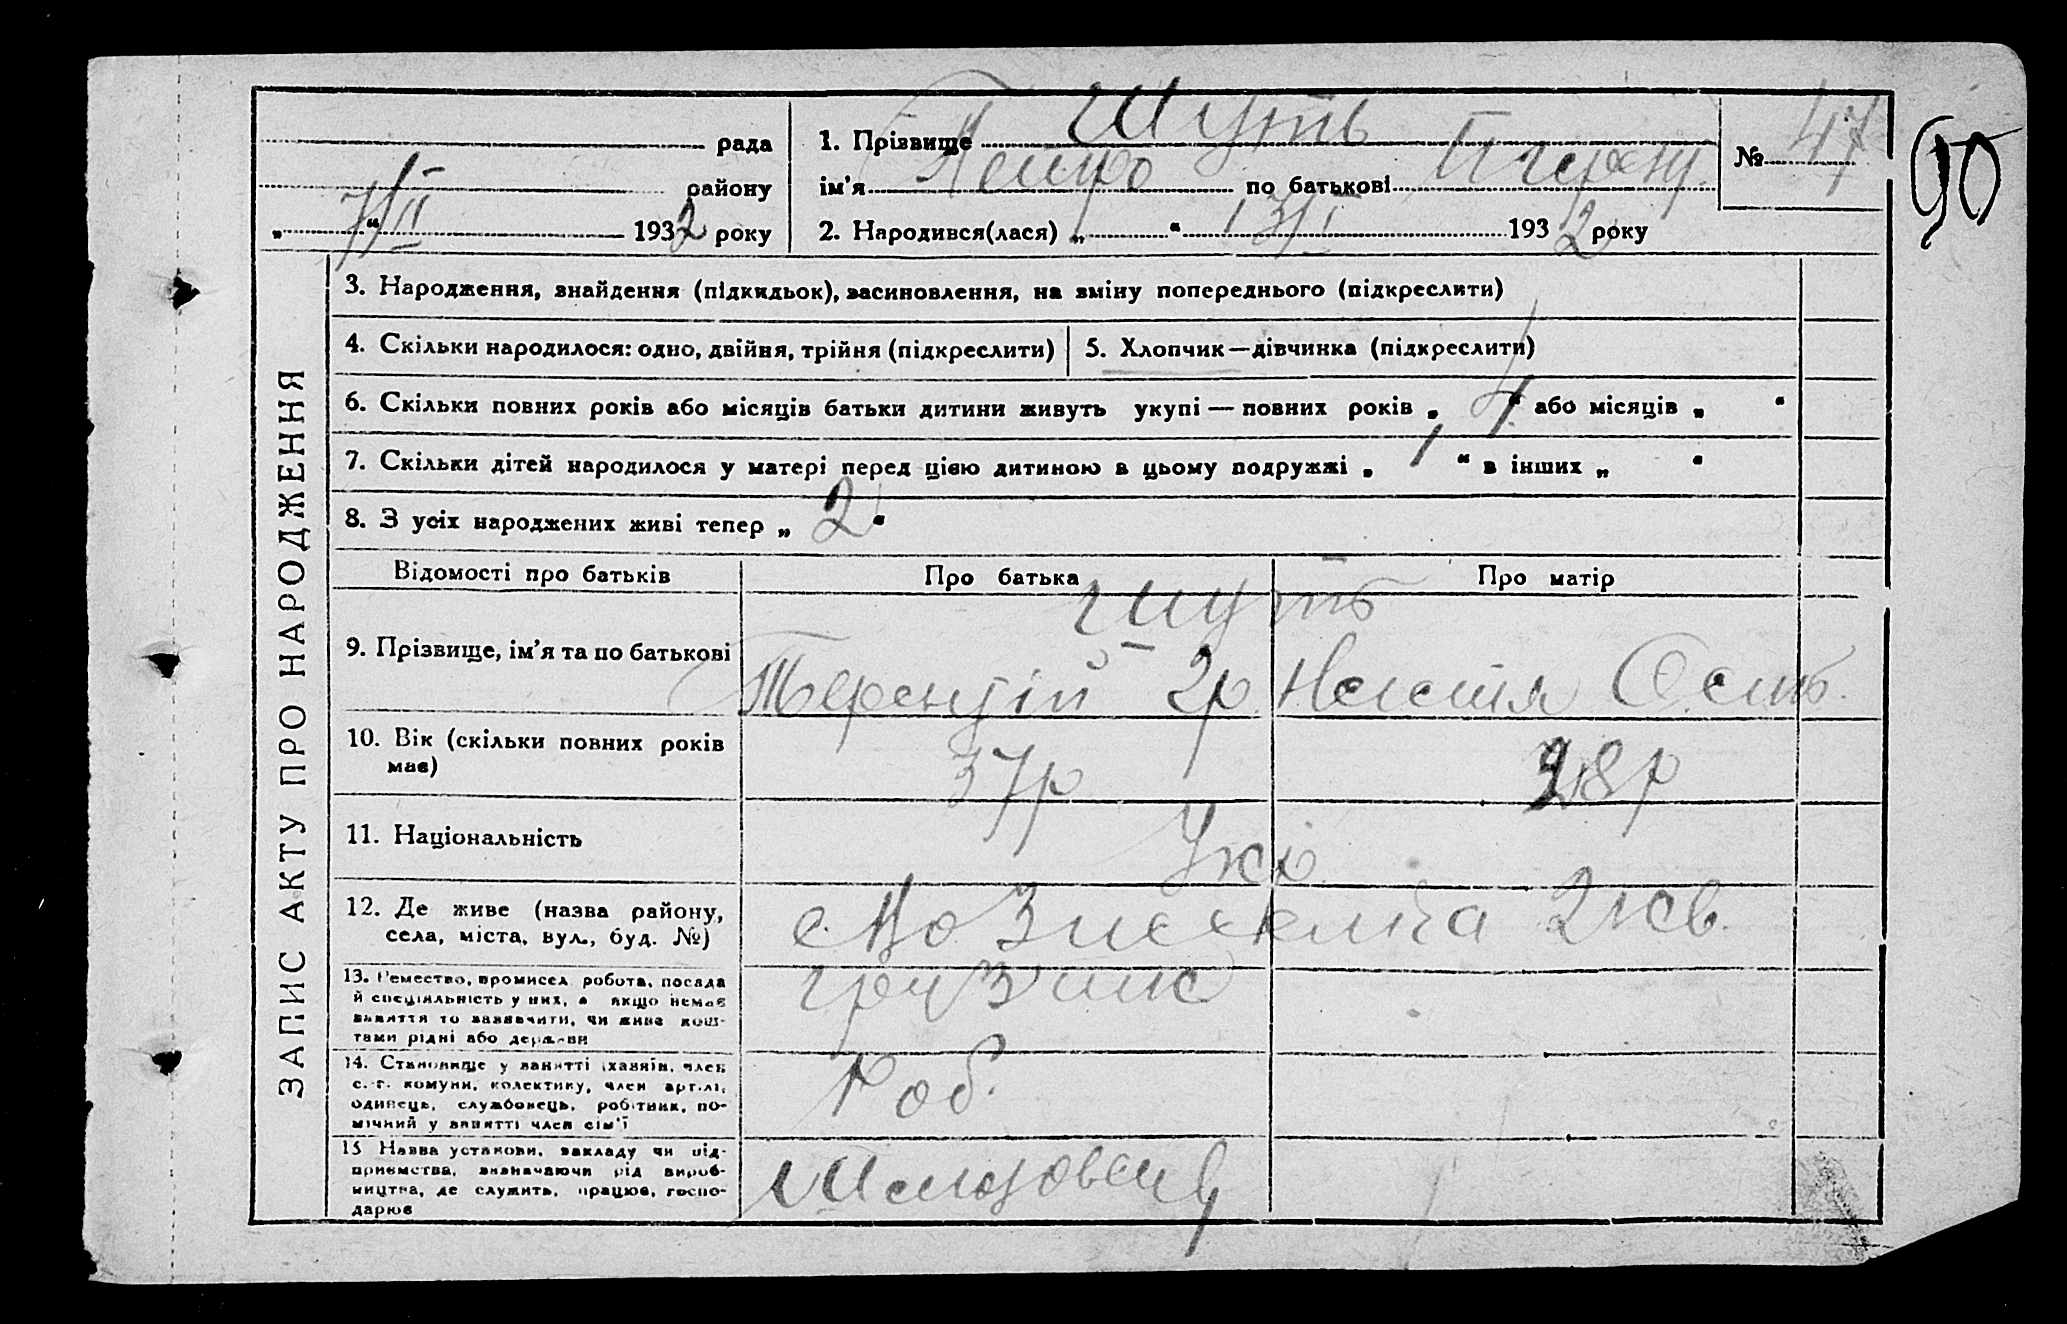 рада
району
„ 7/II “ 1932 року
1. Прізвище Шуть
ім’я Петро по батькові
2. Народився(лася) „ “ 13/I 1932 року
№ 47
90
ЗАПИС АКТУ ПРО НАРОДЖЕННЯ
3. Народження, знайдення (підкидьок), засиновлення, на зміну попереднього (підкреслити)
4. Скільки народилося: одно, двійня, трійня (підкреслити)
5. Хлопчик—дівчинка (підкреслити)
6. Скільки повних років або місяців батьки дитини живуть укупі — повних років „ 4 “ або місяців „ “
7. Скільки дітей народилося у матері перед цією дитиною в цьому подружжі „ 1 “ в інших „ “
8. З усіх народжених живі тепер „ 2 “
Відомості про батьків
Про батька
Про матір
9. Прізвище, ім’я та по батькові
Шуть
Терентій Гр.
Настя
10. Вік (скільки повних років
має)
37р
28р
11. Національність
Укр
12. Де живе (назва району,
села, міста, вул., буд. №)
13. Ремество, промисел, робота, посада
й спеціяльність у них, а якщо немає
заняття то зазначити, чи живе кош-
тами рідні або держави
грузчик
14. Становище у занятті (хазяїн, член
с.-г. комуни, колективу, член артілі,
одинець, службовець, робітник, по-
мічний у занятті член сім’ї
Роб.
15 Назва установи, закладу чи під-
приємства, визначаючи рід вироб-
ництва, де служить, працює, госпо-
дарює